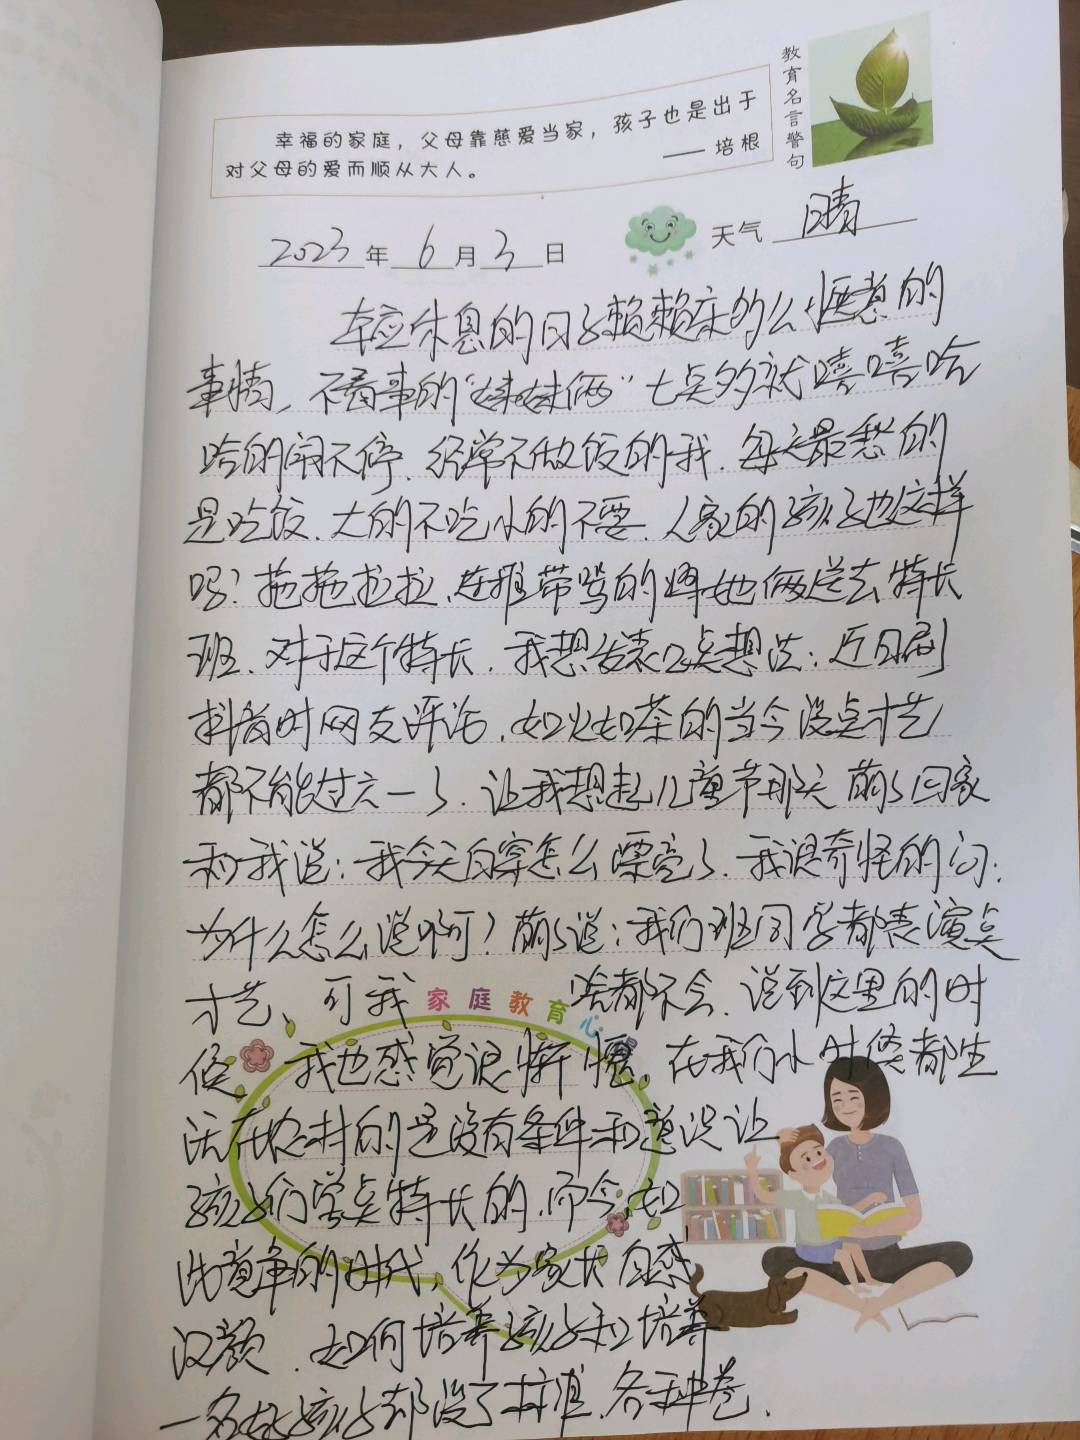 教育名言警句
幸福的家庭，父母靠慈爱当家，孩子也是出于
对父母的爱而顺从大人。
—— 培根
2023年6月3日 天气 晴
本应休息的日子赖赖床多么惬意的
事情，不省事的“妹妹俩”七点多就嘻嘻哈
哈的闹不停．经常不做饭的我．每天最愁的
是吃饭．大的不吃小的不要．人家的孩子也这样
吗？拖拖拉拉．连推带骂的将她俩送去特长
班．对于这个特长．我想发表几点想法：近日刷
抖音时网友评论．如火如荼的当今没点才艺
都不能过六一了．让我想起儿童节那天萌萌回家
和我说：我今天白穿怎么漂亮了．我很奇怪的问：
为什么怎么说啊？萌萌说：我们班同学都表演点
才艺、可我啥都不会．说到这里的时
家庭教育心
候．我也感觉很惭愧．在我们小时候都生
活在农村的是没有条件和意识让
孩子们学点特长的．而今．如
此竞争的时代，作为家长自感
汉颜．如何培养孩子和培养
一名好孩子都没了标准．各种卷．